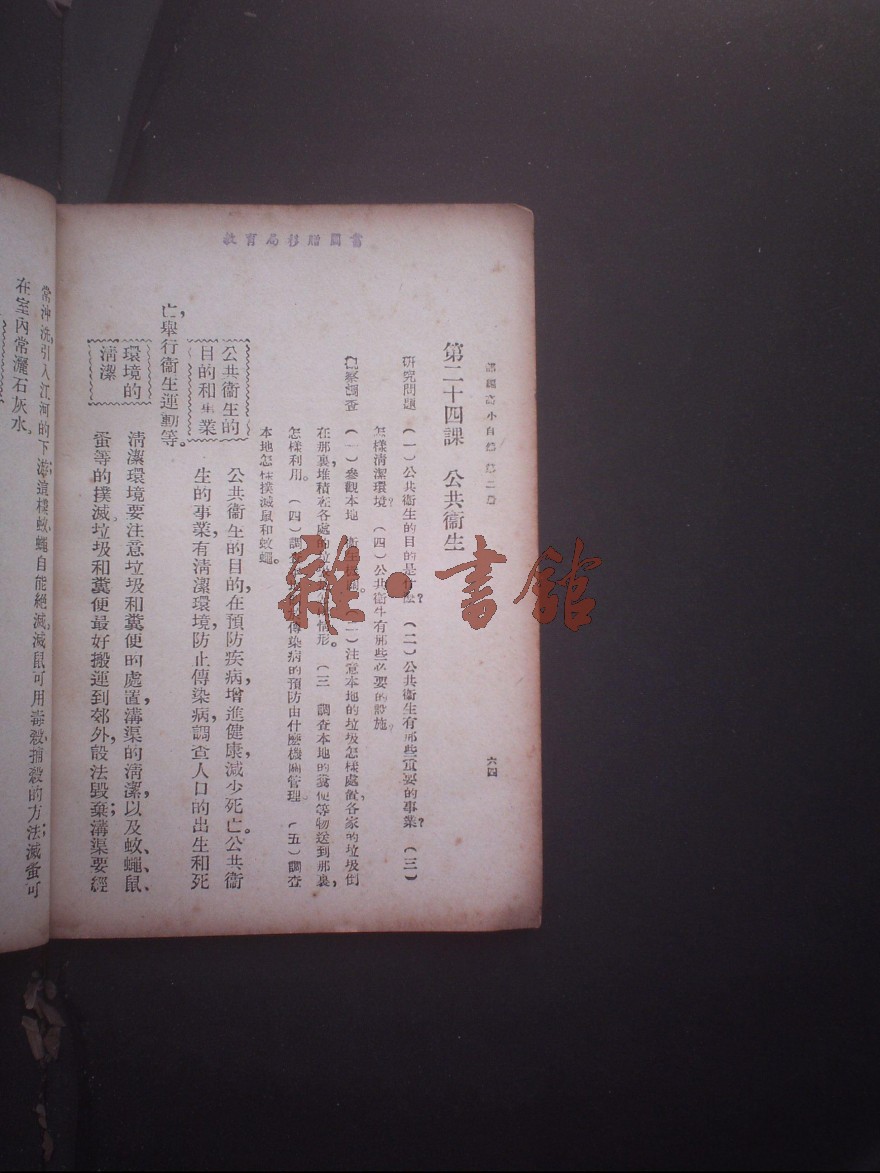 教育局移贈圖書
部編高小自然 第二册
六四
第二十四課 公共衞生
研究問題 (一)公共衞生的目的是什麽? (二)公共衞生有那些重要的事業? (三)
怎樣清潔環境? (四)公共衞生有那些必要的設施?
觀察調查 (一)參觀本地 衞生 (二)注意本地的垃圾怎樣處置,各家的垃圾倒
在那裏,堆積在各處的垃 情形。 (三 調查本地的糞便等物送到那裏,
怎樣利用。 (四)調查 傳染病的預防由什麽機關管理。 (五)調查
本地怎樣撲滅鼠和蚊蠅。
公共衞生的
目的和事業
公共衞生的目的,在預防疾病,增進健康,減少死亡。公共衞
生的事業,有清潔環境,防止傳染病,調查人口的出生和死
亡,舉行衞生運動等。
環境的
清潔
清潔環境要注意垃圾和糞便的處置,溝渠的清潔,以及蚊、蠅、鼠、
蚤等的撲滅。垃圾和糞便最好搬運到郊外,設法毀棄;溝渠要經
常沖洗,引入江河的下游;這樣,蚊蠅自能絕滅。滅鼠可用毒殺捕殺的方法;滅蚤可
在室內常灑石灰水。
雜·書館